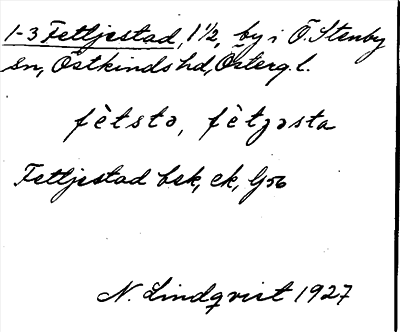 1-3 Fettjestad, 1 1/2, by i Ö. Stenby
sn, Östkinds hd, Österg. l.
fètstə, fètjəsta
Fettjestad bsk, ek, G56
N. Lindqvist 1927